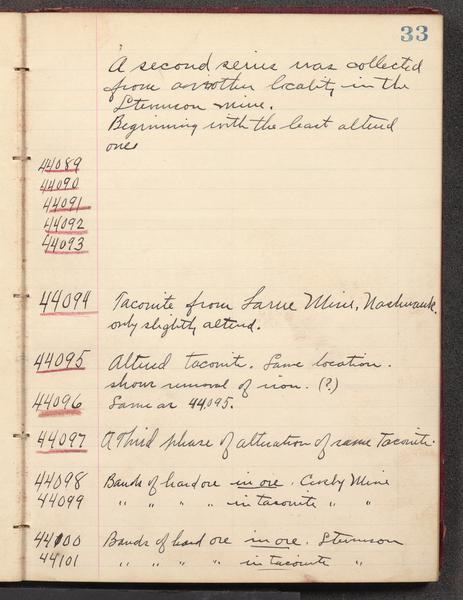 33
A second series was collected
from another locality in the
Stevenson mine.
Beginning with the least altered
ones
44089
44090
44091
44092
44093
44094 Taconite from Larue Mine, Nashwauk.
only slightly altered.
44095 Altered taconite. Same location.
shows removal of iron. (?)
44096 Same as 44095.
44097 A third phase of alteration of same taconite.
44098 Bands of hard ore in ore. Crosby Mine
44099 " " " " in taconite " "
44100 Bands of hard ore in ore. Stevenson
44101 " " " " in taconite "